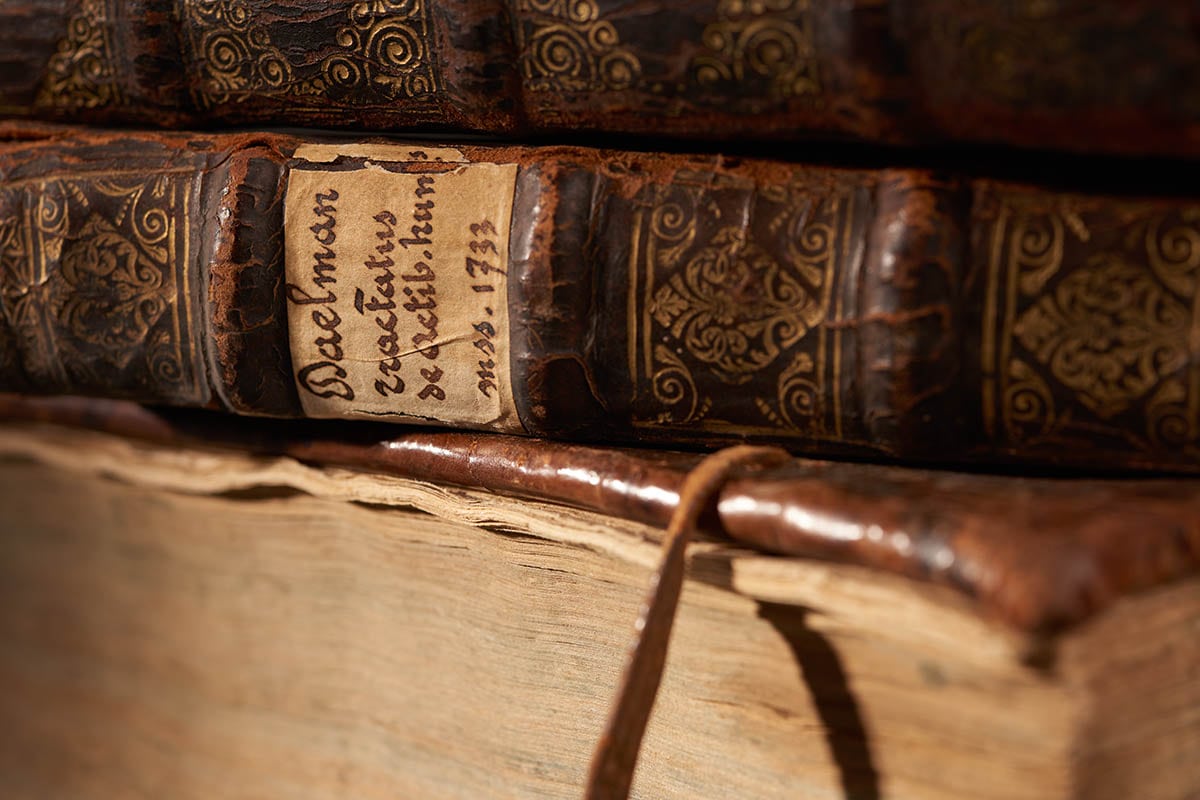 Daelman
tractatus
de actib. hum.
mss. 1733